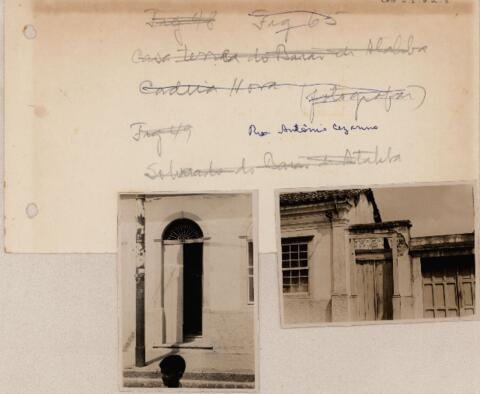 Fig 48 Fig 65
Casa terrea do Barão de Ataliba
Cadeia Nova (fotografar)
Fig 49 Rua Antônio Cezarino
Sobrado do Barão de Ataliba